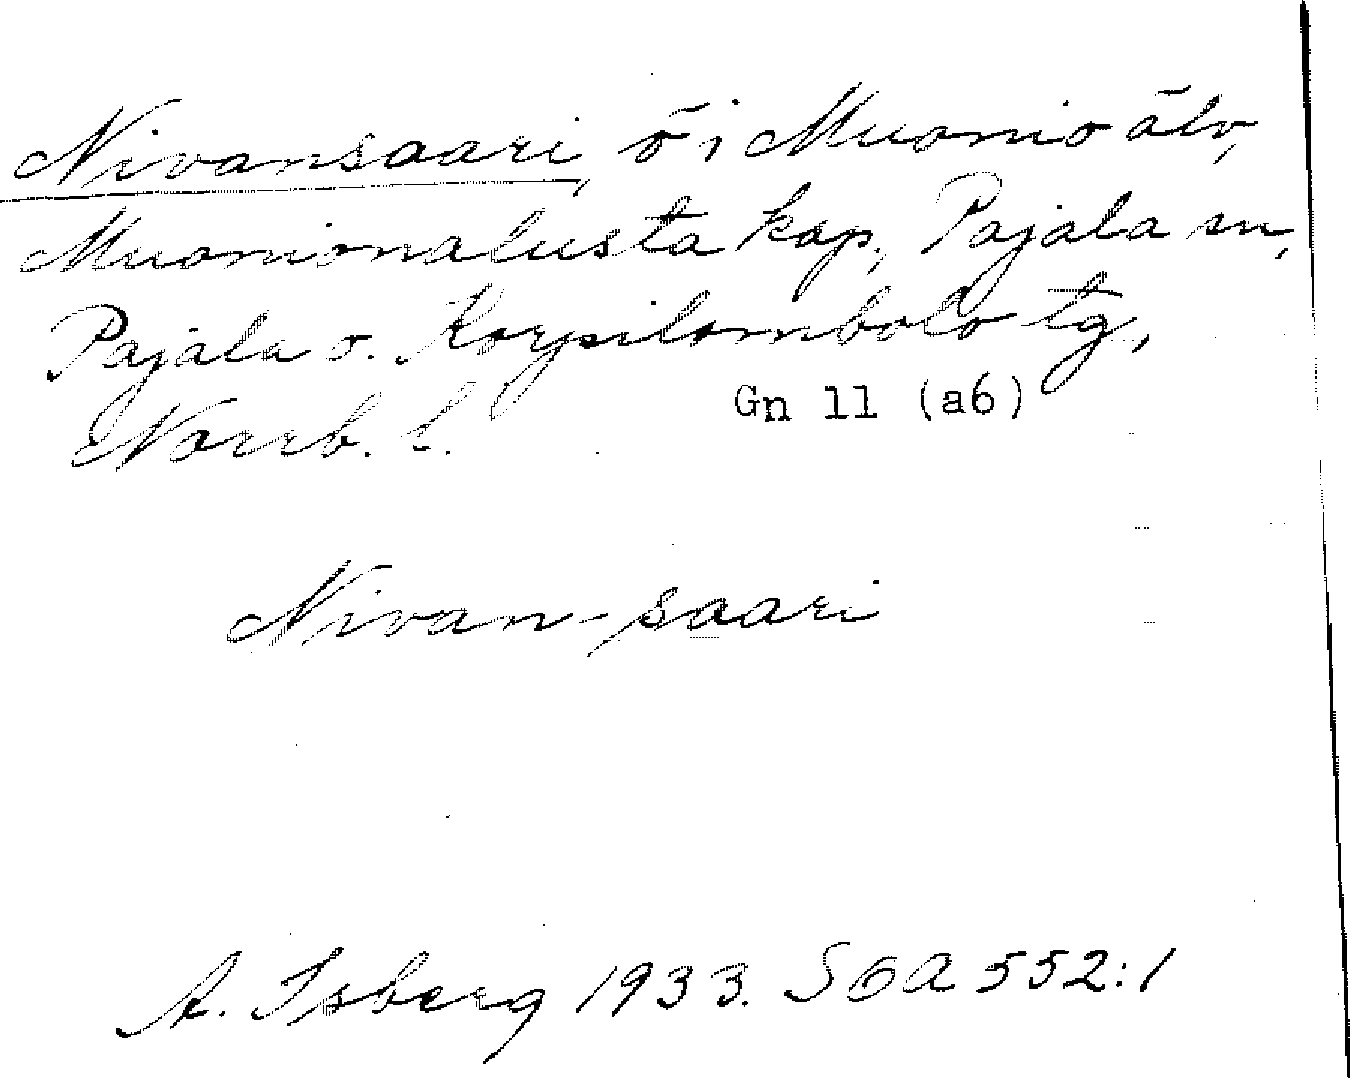 Nivansaari, ö i Muonio älv,
Muonionalusta kap, Pajala sn,
Pajala o. Korpilombolo tg,
Norrb. l. Gn 11 (a6)
Nivan-saari
A. Isberg 1933. SOA 552:1